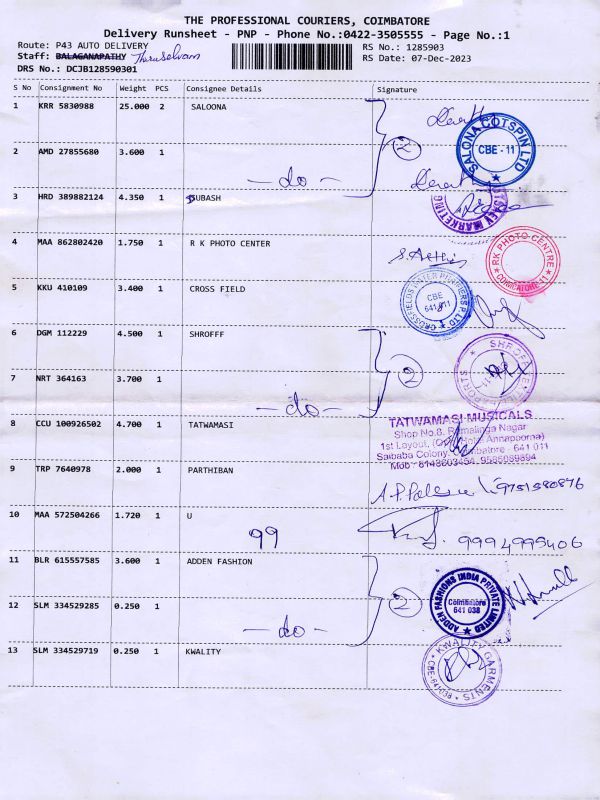 THE PROFESSIONAL COURIERS, COIMBATORE
Delivery Runsheet - PNP - Phone No.:0422-3505555 - Page No.:1
Route: P43 AUTO DELIVERY
RS No.: 1285903
Staff: BALAGANAPATHY Thiruselvam
RS Date: 07-Dec-2023
DRS No.: DCJB128590301
S No Consignment No Weight PCS Consignee Details Signature
1 KRR 5830988 25.000 2 SALOONA
2 AMD 27855680 3.600 1 -do-
2
SALONA COTSPIN LTD CBE - 11
3 HRD 389882124 4.350 1 SUBASH
MARKETING
4 MAA 862802420 1.750 1 R K PHOTO CENTER
RK PHOTO CENTRE COIMBATORE-11
5 KKU 410109 3.400 1 CROSS FIELD
CROSSFIELDS WATER PURIFIERS P LTD CBE 641 011
6 DGM 112229 4.500 1 SHROFFF
7 NRT 364163 3.700 1 -do-
2
8 CCU 100926502 4.700 1 TATWAMASI
TATWAMASI MUSICALS
Shop No.8, Ramalinga Nagar
1st Layout, Annapoorna)
Saibaba Colony, Coimbatore - 641 011
Mob
9 TRP 7640978 2.000 1 PARTHIBAN
9751580876
10 MAA 572504266 1.720 1 U
99
9994995406
11 BLR 615557585 3.600 1 ADDEN FASHION
12 SLM 334529285 0.250 1 -do-
2
ADDEN FASHIONS INDIA PRIVATE LIMITED Coimbatore 641 038
13 SLM 334529719 0.250 1 KWALITY
KWALITY GARMENTS